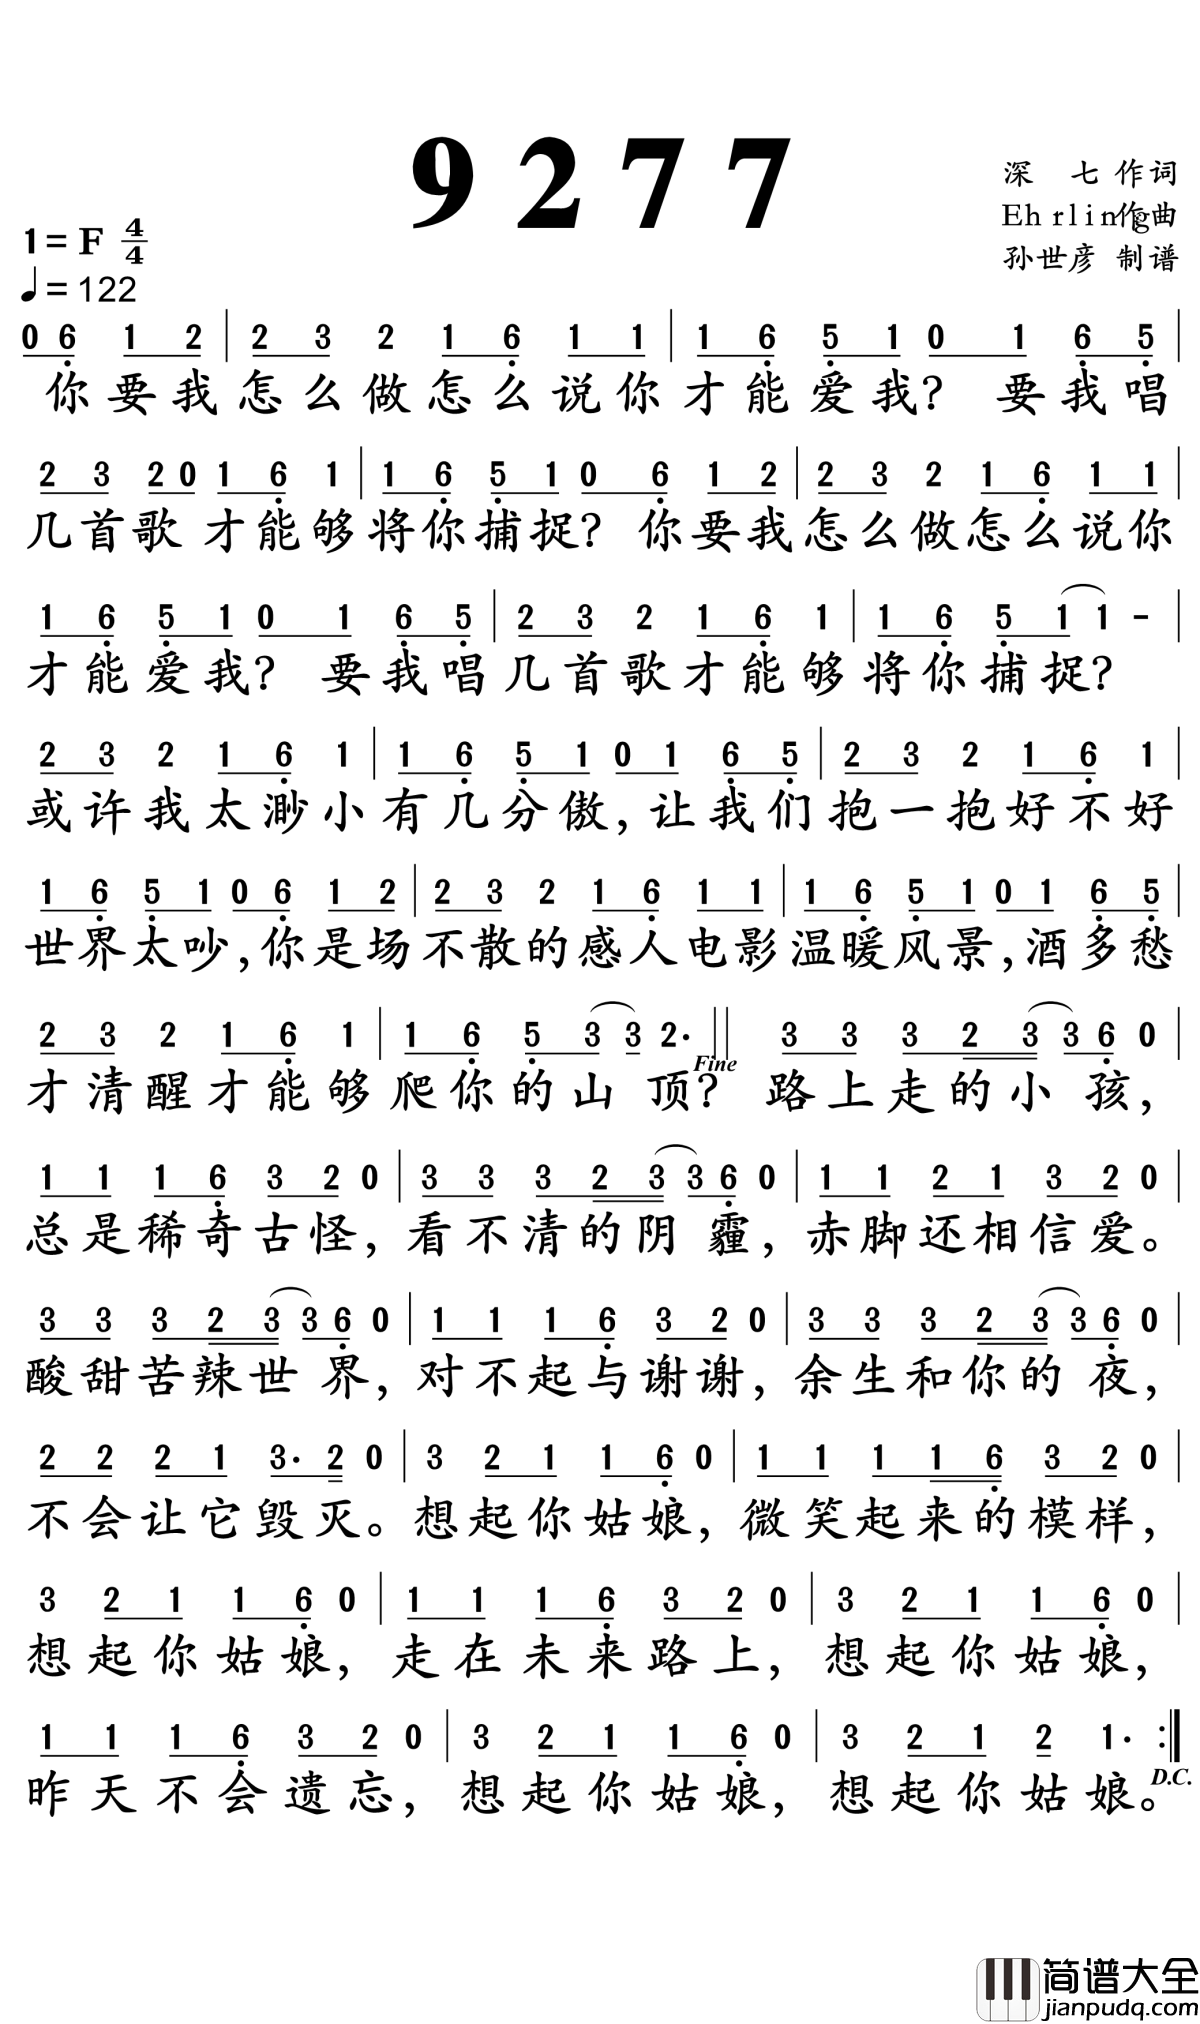 9 2 7 7
深 七 作词
Ehrling作曲
孙世彦 制谱
1=F 4/4
♩=122
0 6̣ 1 2 | 2 3 2 1 6̣ 1 1 | 1 6̣ 5̣ 1 0 1 6̣ 5̣ |
你要我怎么做怎么说你才能爱我? 要我唱
2 3 2 0 1 6̣ 1 | 1 6̣ 5̣ 1 0 6̣ 1 2 | 2 3 2 1 6̣ 1 1 |
几首歌 才能够将你捕捉? 你要我怎么做怎么说你
1 6̣ 5̣ 1 0 1 6̣ 5̣ | 2 3 2 1 6̣ 1 | 1 6̣ 5̣ 1 1 - |
才能爱我? 要我唱几首歌才能够将你捕捉?
2 3 2 1 6̣ 1 | 1 6̣ 5̣ 1 0 1 6̣ 5̣ | 2 3 2 1 6̣ 1 |
或许我太渺小有几分傲,让我们抱一抱好不好
1 6̣ 5̣ 1 0 6̣ 1 2 | 2 3 2 1 6̣ 1 1 | 1 6̣ 5̣ 1 0 1 6̣ 5̣ |
世界太吵,你是场不散的感人电影温暖风景,酒多愁
2 3 2 1 6̣ 1 | 1 6̣ 5̣ 3 3 2· || 3 3 3 2 3 3 6̣ 0 |
Fine
才清醒才能够爬你的山 顶? 路上走的小 孩,
1 1 1 6̣ 3 2 0 | 3 3 3 2 3 3 6̣ 0 | 1 1 2 1 3 2 0 |
总是稀奇古怪,看不清的阴 霾,赤脚还相信爱。
3 3 3 2 3 3 6̣ 0 | 1 1 1 6̣ 3 2 0 | 3 3 3 2 3 3 6̣ 0 |
酸甜苦辣世 界,对不起与谢谢,余生和你的 夜,
2 2 2 1 3· 2 0 | 3 2 1 1 6̣ 0 | 1 1 1 1 6̣ 3 2 0 |
不会让它毁灭。想起你姑娘,微笑起来的模样,
3 2 1 1 6̣ 0 | 1 1 1 6̣ 3 2 0 | 3 2 1 1 6̣ 0 |
想起你姑娘,走在未来路上,想起你姑娘,
1 1 1 6̣ 3 2 0 | 3 2 1 1 6̣ 0 | 3 2 1 2 1· :|
D.C.
昨天不会遗忘,想起你姑娘,想起你姑娘。
简谱大全
jianpudq.com